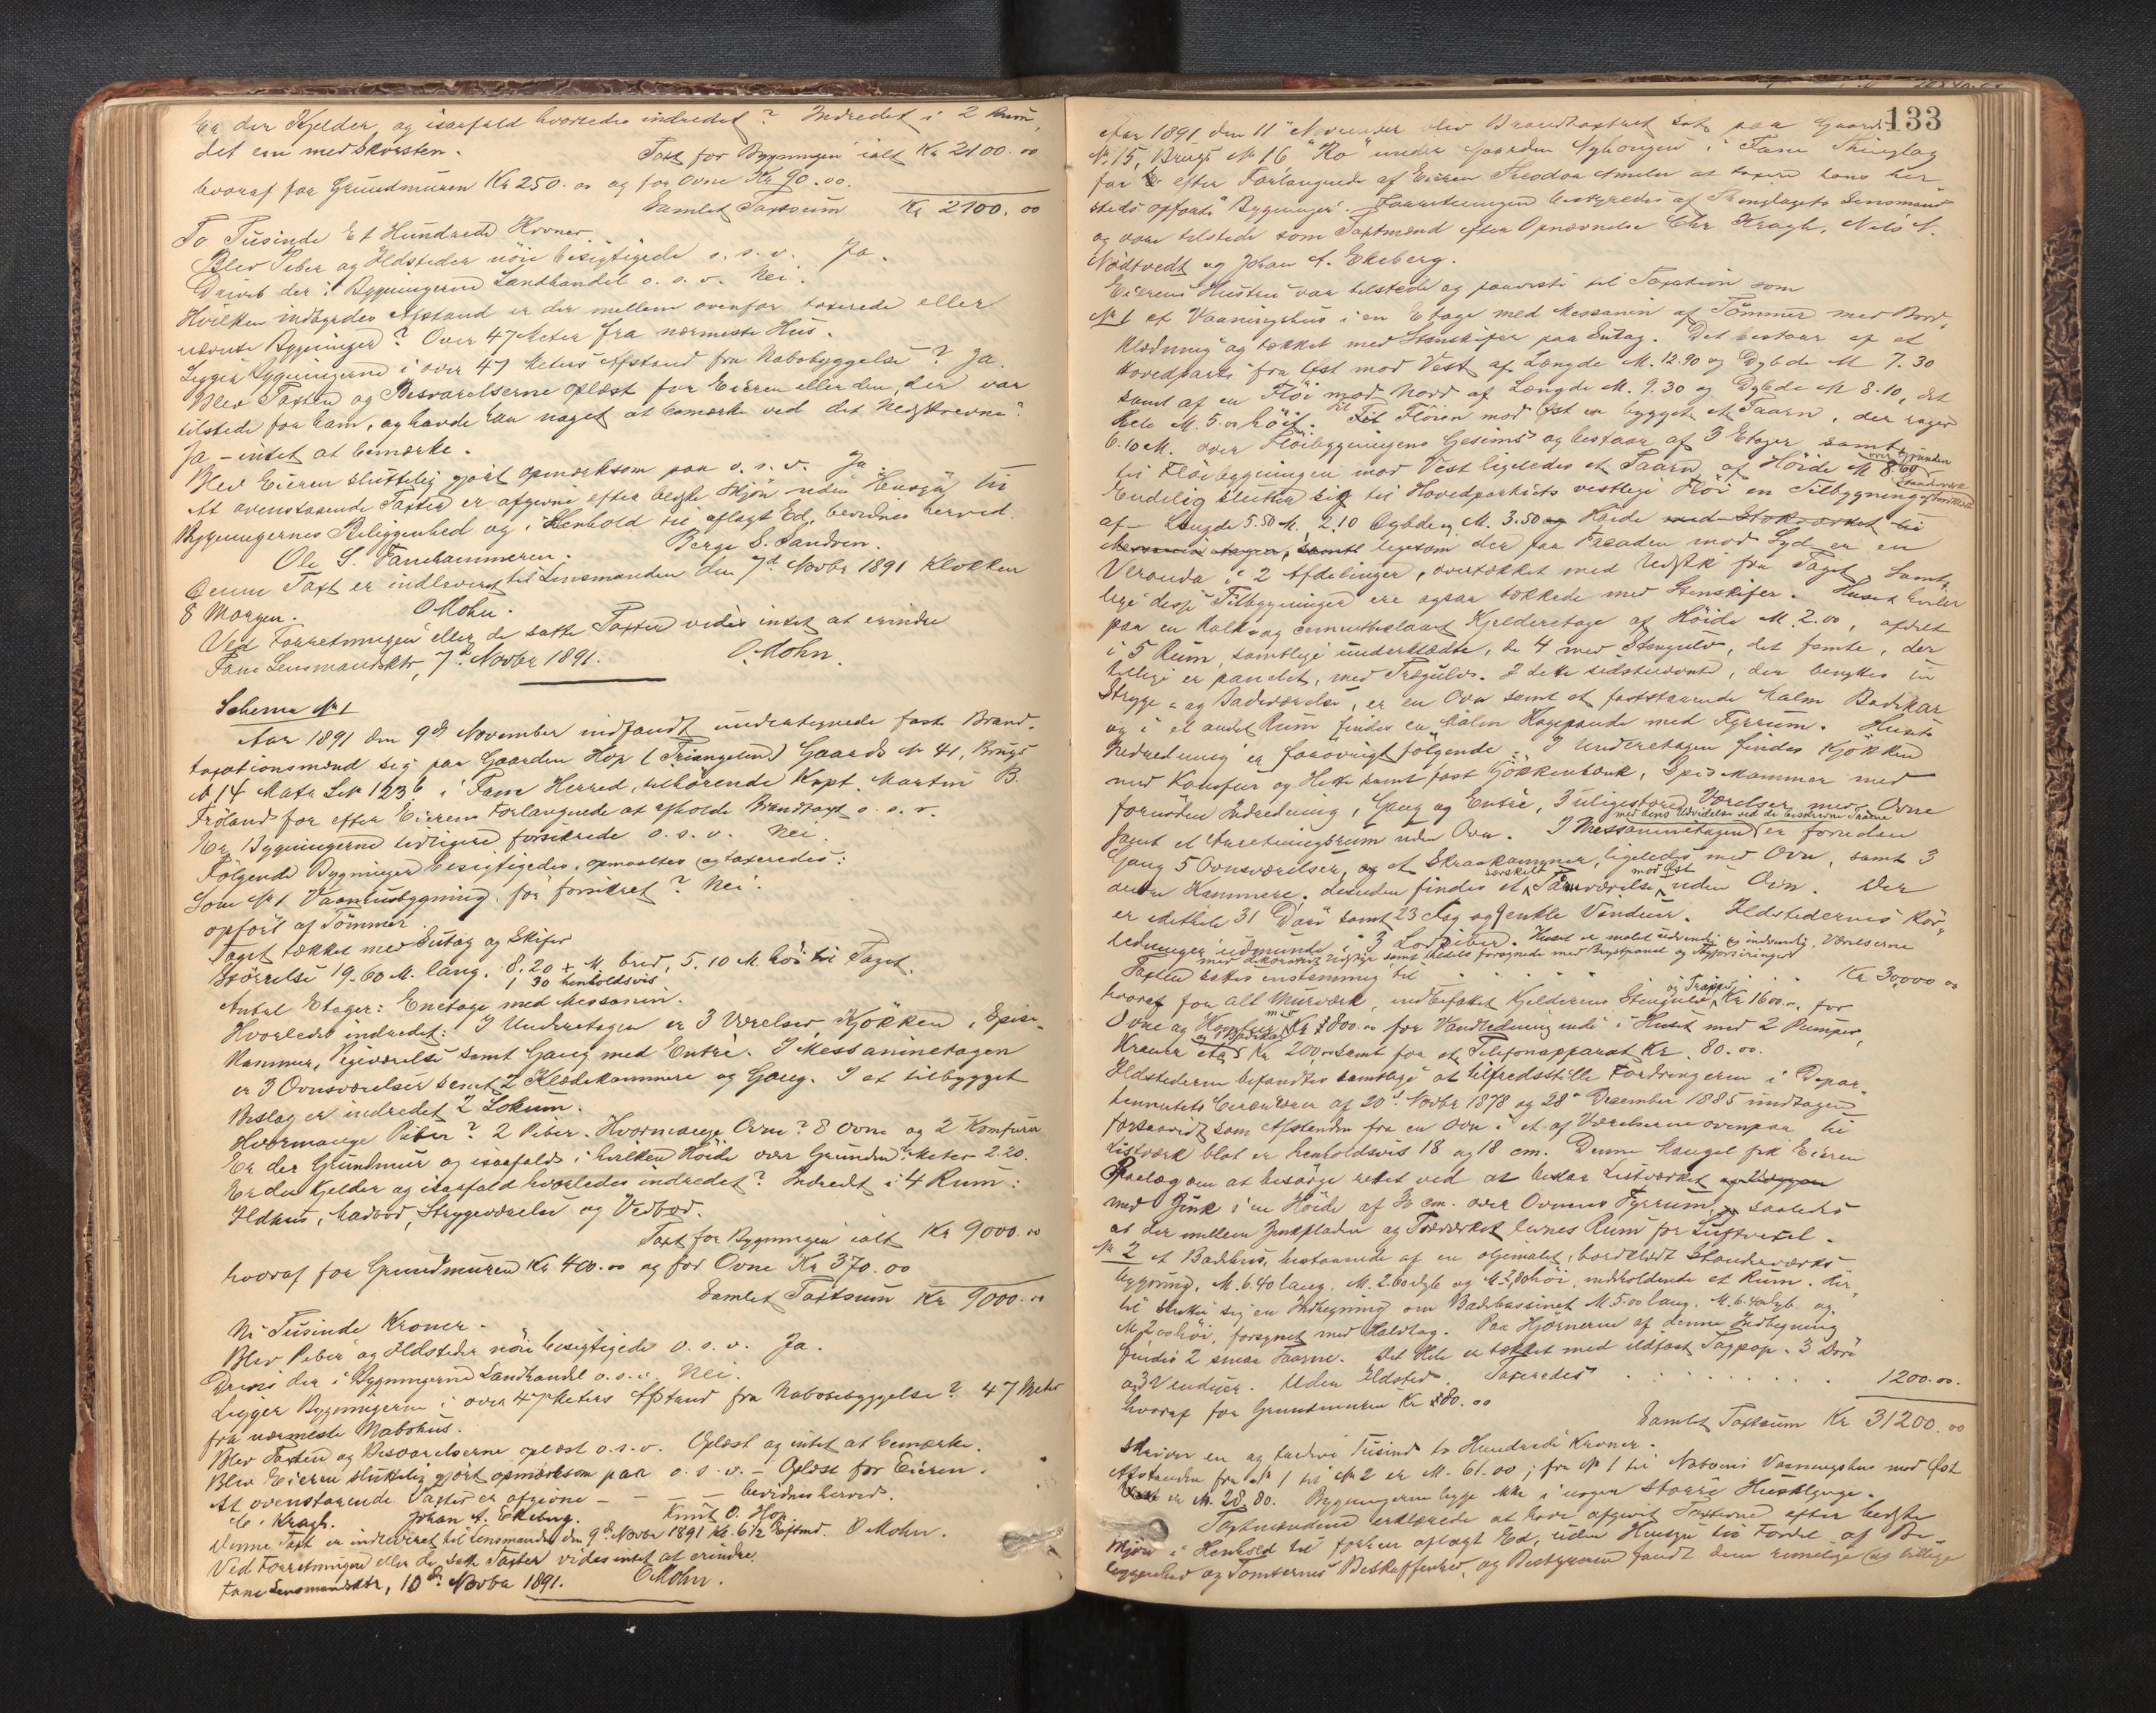 Er der Kjelder og isaafald hvorledes indredet? Indredet i 2 Rum,
det ene med Skorsten.
Taxt for Bygningen ialt Kr 2100.00
hvoraf for Grundmuren Kr 250.00 og for Ovne Kr 90.00.
Samlet Taxtsum Kr 2100.00
To Tusinde Et Hundrede Kroner.
Blev Piber og Ildsteder nöie besigtigede o. s. v. Ja.
Drives der i Bygningerne Landhandel o. s. v. Nei.
Hvilken indbyrdes Afstand er der mellem ovenfor taxerede eller
nævnte Bygninger? Over 47 Meter fra nærmeste Hus.
Ligger Bygningerne i over 47 Meters Afstand fra Nabobyggelse? Ja.
Blev Taxten og Besvarelserne oplæst for Eieren eller den, der var
tilstede for ham, og havde han noget at bemærke ved det Nedskrevne?
Ja - intet at bemærke.
Blev Eieren sluttelig gjort opmærksom paa o. s. v. Ja.
At ovenstaaende Taxter er afgivne efter bedste Skjön uden Hensyn til
Bygningernes Beliggenhed og i Henhold til aflagt Ed, bevidnes herved.
Ole S. Fanehammeren. Berge S. Sandven.
Denne Taxt er indleveret til Lensmanden den 7d Novbr 1891 Klokken
8 Morgen. O Mohn.
Ved Forretningen eller de satte Taxter vides intet at erindre
Fane Lensmandsktr, 7d Novbr 1891. O. Mohn.
Schema No 1
Aar 1891 den 9de November indfandt undertegnede faste Brand-
taxationsmænd sig paa Gaarden Hop (Triangelen) Gaards No 41, Brugs
No 14 Matr Lit 123b i Fane Herred, tilhörende Kapt. Martin B.
Fröland for efter Eierens Forlangende at afholde Brandtaxt o. s. v.
Er Bygningerne tidligere forsikrede o. s. v. Nei.
Fölgende Bygninger besigtigedes, opmaaltes og taxeredes:
Som No 1. Vaaningsbygning. för forsikret? Nei.
opfört af Tömmer.
Taget tækket med Sutag og Skifer
Störrelse 19.60 M. lang. 8.20 + M. bred, 5.10 M. höi til Taget.
1 30 henholdsvis
Antal Etager: En etage med Messanin.
Hvorledes indredet: I Underetagen er 3 Værelser, Kjökken, Spise-
kammer, Pigeværelse samt Gang med Entrè. I Messaninetagen
er 3 Ovnsværelser samt 2 Klædekammere og Gang. I et tilbygget
Bislag er indredet 2 Lokum.
Hvormange Piber? 2 Piber. Hvormange Ovne? 8 Ovne og 2 Komfurer
Er der Grundmur og isaafald i hvilken Höide over Grunden? Meter 2.20.
Er der Kjelder og isaafald hvorledes indredet? Indredet i 4 Rum:
Ildhus, Madbod, Strygeværelse og Vedbod.
Taxt for Bygningen ialt Kr 9000.00
hvoraf for Grundmuren Kr 400.00 og for Ovne Kr 370.00
Samlet Taxtsum Kr 9000.00
Ni Tusinde Kroner.
Blev Piber og Ildsteder nöie besigtigede o. s. v. Ja.
Drives der i Bygningerne Landhandel o.s.v. Nei.
Ligger Bygningerne i over 47 Meters Afstand fra Nabobebyggelse? 47 Meter
fra nærmeste Nabohus.
Blev Taxten og Besvarelserne oplæst o.s.v. Oplæst og intet at bemærke.
Blev Eieren sluttelig gjort opmærksom paa o. s. v. - Oplæst for Eieren.
At ovenstaaende Taxter er afgivne - - - - bevidnes herved.
C. Kragh. Johan A. Ekeberg. Knut O. Hop
Denne Taxt er indleveret til Lensmanden den 9de Novbr 1891 Kl. 6 1/2 Eftmd. O Mohn.
Ved Forretningen eller de satte Taxter vides intet at erindre.
Fane Lensmandsktr, 10de Novbr 1891. O Mohn.
133
Aar 1891 den 11te November blev Brandtaxtret sat paa Gaards
No 15, Brugs No 16 "Ro" under Gaarden Nyhougen i Fane Thinglag
for efter Forlangende af Eieren Theodor Ameln at taxere hans her-
steds opförte Bygninger. Forretningen bestyredes af Thinglagets Lensmand
og vare tilstede som Taxtmænd efter Opnævnelse Chr Kragh, Nils N.
Nödtvedt og Johan A. Ekeberg.
Eierens Hustru var tilstede og paaviste til Taxation som
No 1 et Vaaningshus i en Etage med Messanin af Tömmer med Bord-
klædning og tækket med Stenskifer paa Sutag. Det bestaar af et
Hovedparti fra Öst mod Vest af Længde M. 12.90 og Dybde M 7.30
samt af en Flöi mod Nord af Længde M. 9.30 og Dybde M 8.10, det
Hele M. 5.00 höit. Til Flöien mod Öst er bygget et Taarn, der rager
6.10 M. over Flöibygningens Gesims og bestaar af 3 Etager samt
over Grunden
til Flöibygningen mod Vest ligeledes et Taarn af Höide M 8.60
Endelig slutter sig til Hovedpartiets vestlige Flöi en Tilbygning af
Længde 5.50 M. 2.10 Dybde og M. 3.50 Höide med Stokværket til
ligesom der paa Facaden mod Syd er en
Veranda i 2 Afdelinger, overtækket med Udstik fra Taget. Samt-
lige disse Tilbygninger ere ogsaa tækkede med Stenskifer. Huset hviler
paa en kalk- og cementslaaet Kjelderetage af Höide M. 2.00, afdelt
i 5 Rum, samtlige underklædte, de 4 med Stengulv, det femte, der
tillige er panelet, med Trægulv. I dette sidstnævnte, der benyttes til
Stryge- og Badeværelse, er en Ovn samt et faststaaende Malm Badekar
og i et andet Rum findes en Malm Kogepande med Fyrrum. Husets
Indredning er forövrigt fölgende: I Underetagen findes Kjökken
med Komfur og Hette samt fast Kjökkenbænk, Spisekammer med
fornöden Indredning, Gang og Entré, 3 Værelser med Ovne
med dens Udvidelse ved de beskrevne Taarne
samt et Anretningsrum uden Ovn. I Messaninetagen er foruden
Gang 5 Ovnsværelser og et Skraakammer, ligeledes med Ovn, samt 3
særskilt mod Öst
andre Kammere. desuden findes et Taarnværelse uden Ovn. Der
er ialt 31 Döre samt 23 Fag og enkle Vinduer. Ildstedernes Rör-
ledninger udmunde i 3 Lodpiber. Huset er malet udvendig og indvendig, Værelserne
samt tildels forsynede med Brystpanel og
Taxten sattes enstemmig til . . . . . . Kr 30,000 00
og Trapper
hvoraf for alt Murværk, indbefattet Kjelderens Stengulv Kr 1600.00, for
Ovne og Komfur m. v. Kr 800.00 for Vandledning inde i Huset med 2 Pumper,
og 1 Badekar
Kraner etc. Kr. 200.00 samt for et Telefonapparat Kr. 80.00.
Ildstederne befandtes samtlige at tilfredsstille Fordringerne i Depar-
tementets Circulærer af 20de Novbr 1878 og 28de December 1885 undtagen
forsaavidt som Afstanden fra en Ovn i et af Værelserne ovenpaa til
Listværk blot er henholdsvis 18 og 18 cm. Denne Mangel fik Eieren
Paalæg om at besörge rettet ved at beslaa Listværket
med Zink i en Höide af 30 cm. over Ovnens Fyrrum, saaledes
at der mellem Zinkpladen og Træværket levnes Rum for Luftvexel.
No 2 et Badehus, bestaaende af en oljemalet, bordklædt Standværks-
bygning, M. 6.40 lang, M. 2.60 dyb og M. 2.80 höi, indholdende et Rum. Her-
til slutter sig en Indhegning om Badebassinet M. 5.00 lang, M. 6.40 dyb og
M. 2.00 höi, forsynet med Halvtag. Paa Hjörnerne af denne Indhegning
findes 2 smaa Taarne. Det Hele er tækket med ildfast Tagpap. 3 Döre
og 3 Vinduer. Uden Ildsted. Taxeredes . . . . . . 1200.00.
hvoraf for Grundmuren Kr 80.00
Samlet Taxtsum Kr 31200.00
skriver en og tredive Tusinde to Hundrede Kroner.
Afstanden fra No 1 til No 2 er M. 61.00; fra No 1 til Naboens Vaaningshus mod Öst
er M. 28.80. Bygningerne ligge ikke i nogen större Husklynge.
Taxtmændene erklærede at have afgivet Taxterne efter bedste
Skjön i Henhold til forhen aflagt Ed, uden Hensyn til Fordel af Be-
liggenhed og Tomternes Beskaffenhed, og Bestyreren fandt dem rimelige og billige